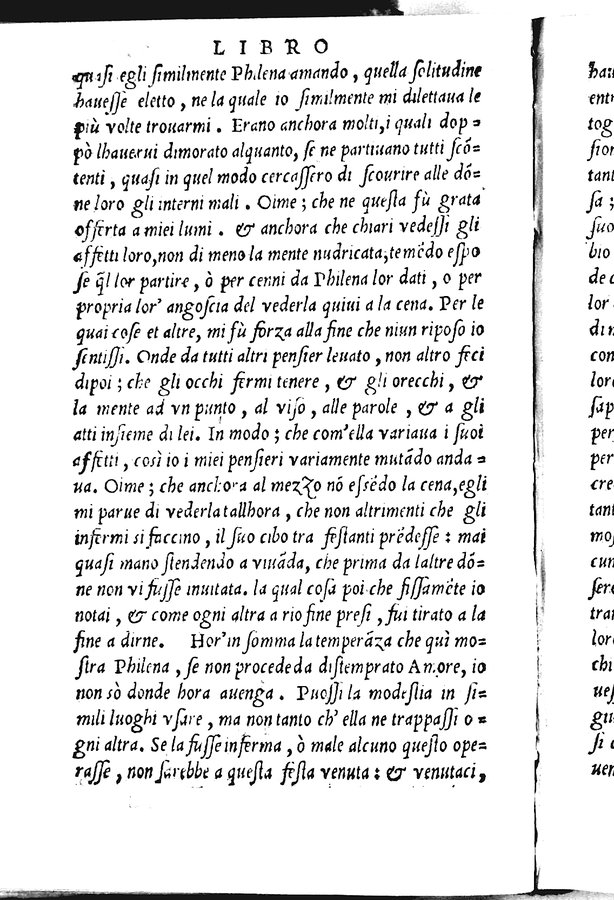 LIBRO
quasi egli similmente Philena amando, quella solitudine
hauesse eletto, ne la quale io similmente mi dilettaua le
più volte trouarmi. Erano anchora molti, i quali dop=
pò lhauerui dimorato alquanto, se ne partiuano tutti scō=
tenti, quasi in quel modo cercassero di scourire alle dō=
ne loro gli interni mali. Oime; che ne questa fù grata
offerta a miei lumi. & anchora che chiari vedessi gli
affetti loro, non di meno la mente nudricata, temēdo espo
se q̄l lor partire, ò per cenni da Philena lor dati, o per
propria lor' angoscia del vederla quiui a la cena. Per le
quai cose et altre, mi fù forza alla fine che niun riposo io
sentissi. Onde da tutti altri pensier leuato, non altro feci
dipoi; che gli occhi fermi tenere, & gli orecchi, &
la mente ad vn punto, al viso, alle parole, & a gli
atti insieme di lei. In modo; che com'ella variaua i suoi
affetti, così io i miei pensieri variamente mutādo anda=
ua. Oime; che anchora al mezzo nō essēdo la cena, egli
mi parue di vederla tallhora, che non altrimenti che gli
infermi si faccino, il suo cibo tra festanti prēdesse: mai
quasi mano stendendo a viuāda, che prima da laltre dō=
ne non vi fusse inuitata. la qual cosa poi che fissamēte io
notai, & come ogni altra a rio fine presi, fui tirato a la
fine a dirne. Hor'in somma la temperāza che quì mo=
stra Philena, se non procede da distemprato Amore, io
non sò donde hora auenga. Puossi la modestia in si=
mili luoghi vsare, ma non tanto ch' ella ne trappassi o=
gni altra. Se la fusse inferma, ò male alcuno questo ope=
rasse, non sarebbe a questa festa venuta: & venutaci,